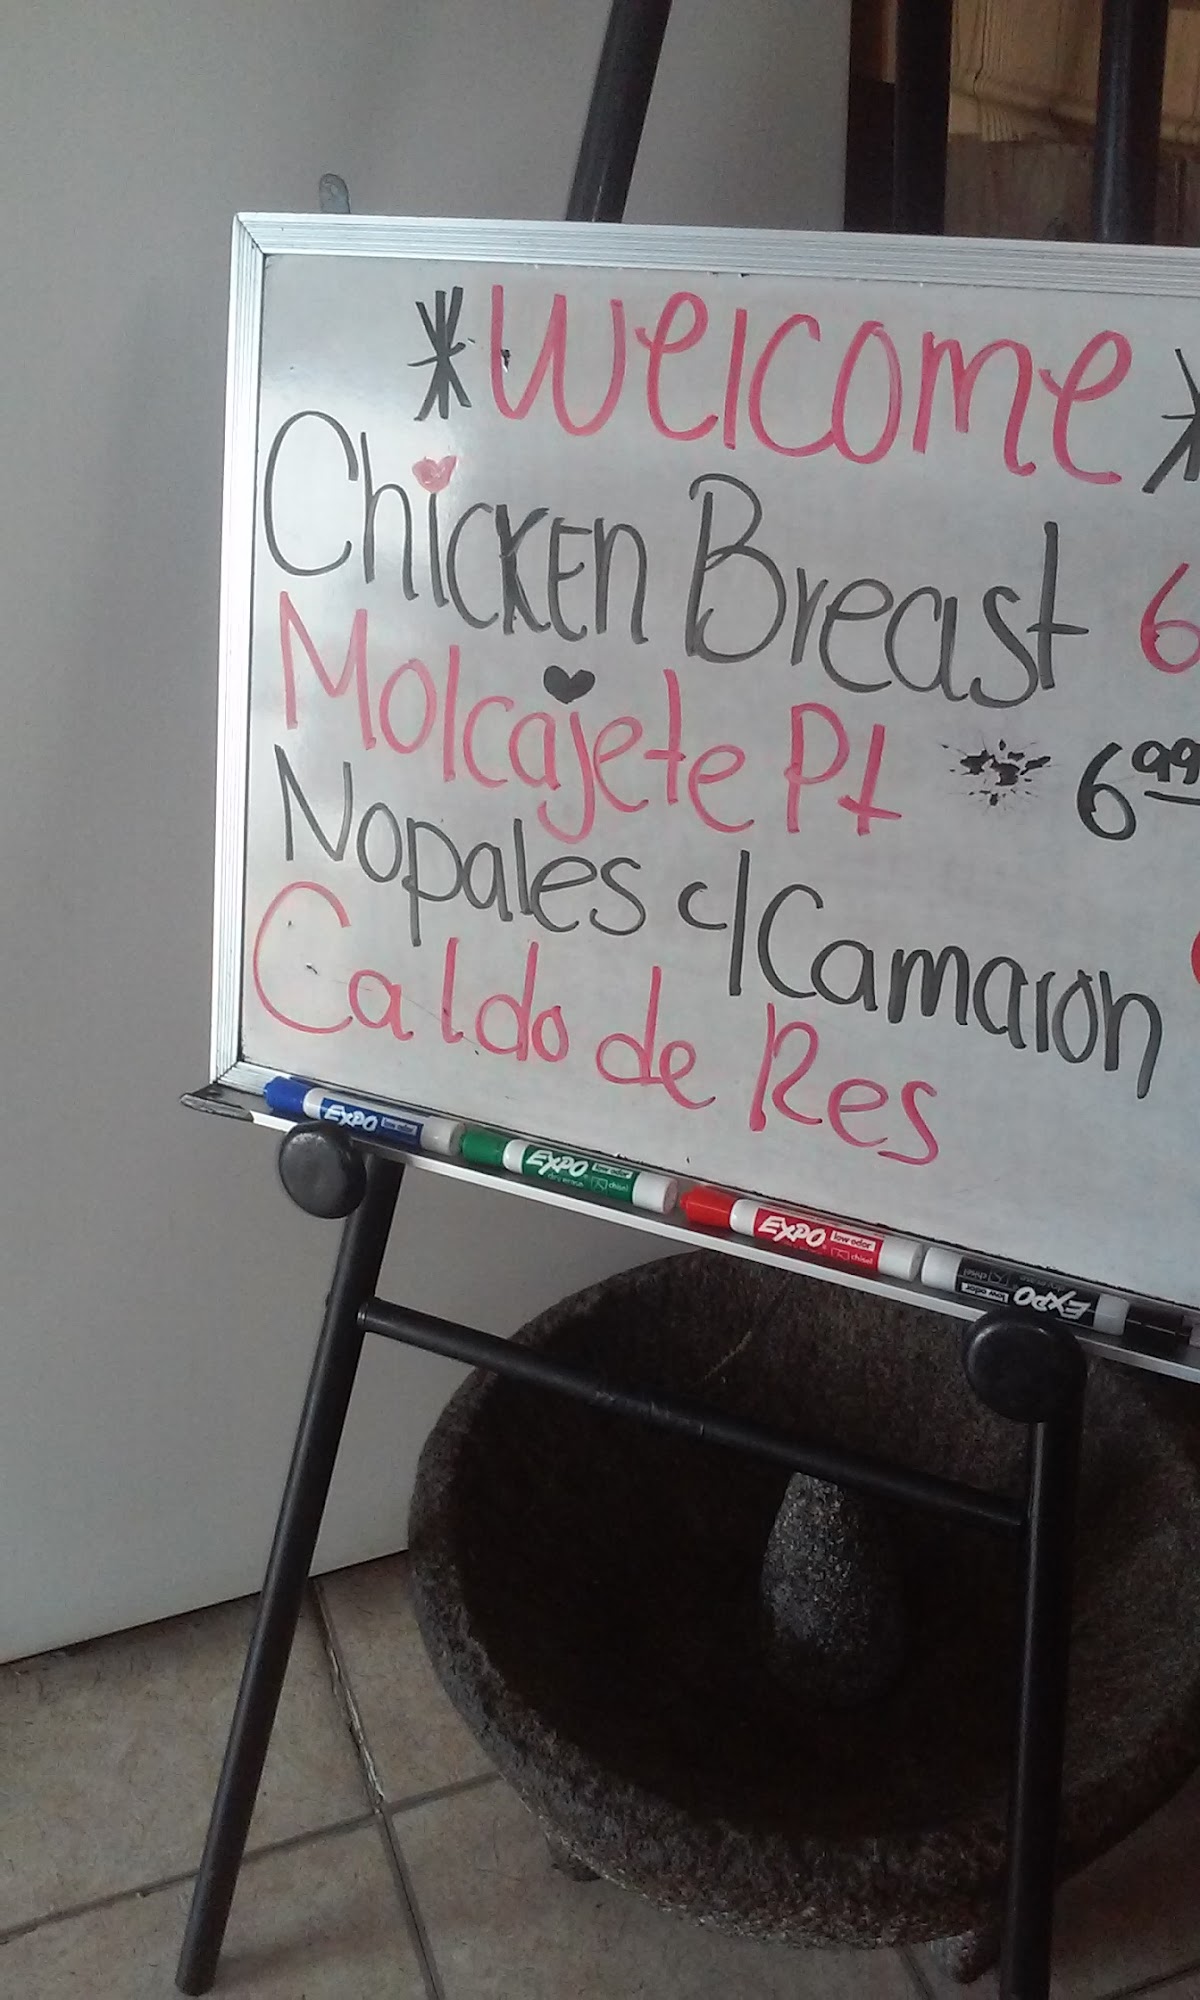 *Welcome*
Chicken Breast 6
Molcajete Pt 6 99
Nopales c/Camaron
Caldo de Res
EXPO low odor
EXPO low odor dry erase chisel
EXPO low odor chisel
EXPO low odor chisel